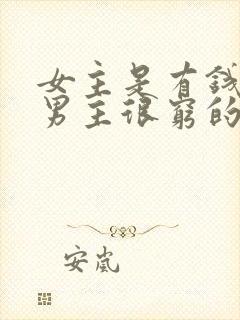 女主是有錢
男主很窮的
安嵐